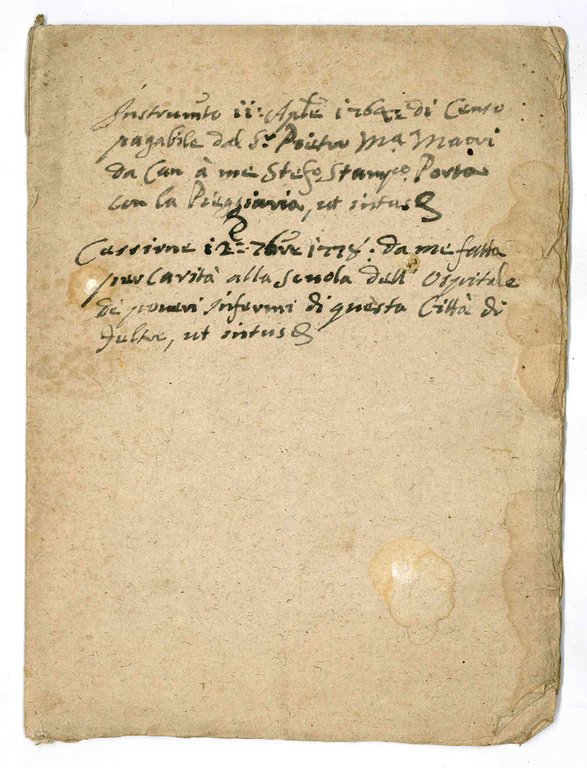 Instrum:to ii: Aple 1764: di Censo
pagabile dal Sr. Pietro Ma
da Can à me Stefo. Stampo. Porta
con la Pieggiaria, ut intus
Cessione 12: 7bre 1778: da me fatta
per Carità alla Scuola dell' Ospitale
de poveri Infermi di questa Città di
Feltre, ut intus